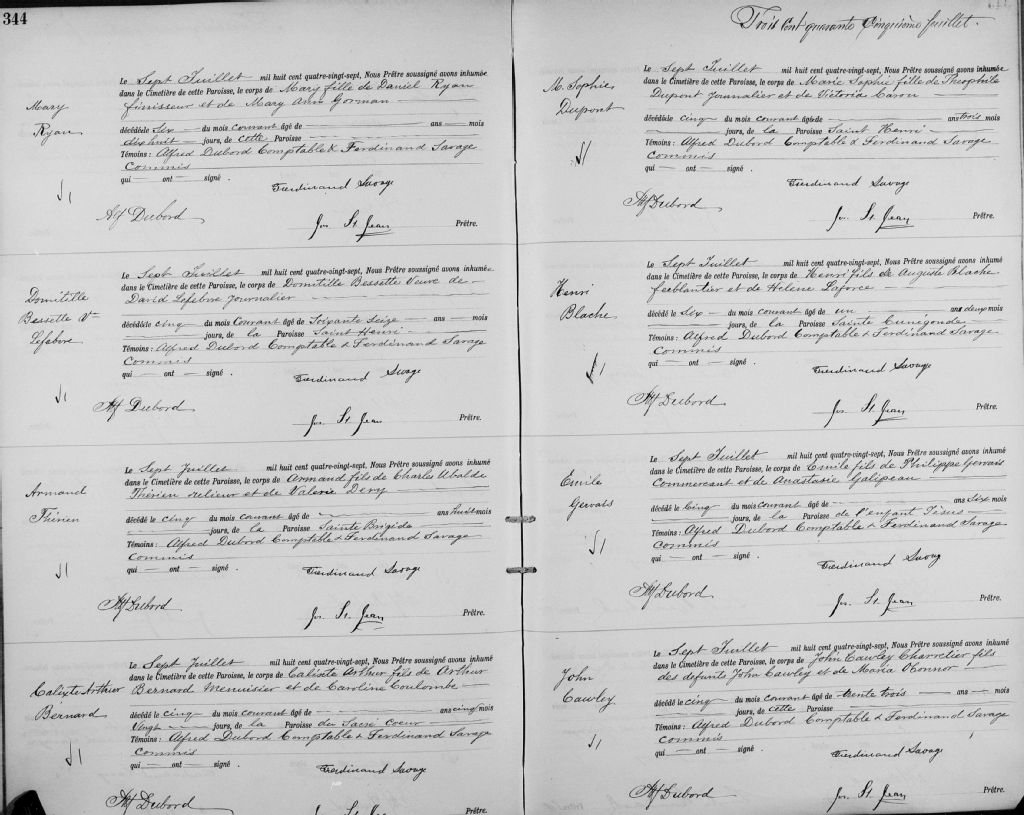 344
Mary
Ryan
Le Sept Juillet mil huit cent quatre-vingt-sept, Nous Prêtre soussigné avons inhumée
dans le Cimetière de cette Paroisse, le corps de Mary fille de Daniel Ryan
finisseur et de Mary Ann Gorman
décédée le Six du mois courant âgé de ans mois
dix huit jours, de cette Paroisse
Témoins : Alfred Dubord Comptable & Ferdinand Savage
Commis
qui — ont — signé .
Ferdinand Savage
Alf Dubord
Jos St. Jean Prêtre.
Domitille
Bessette Ve
Lefebvre
Le Sept Juillet mil huit cent quatre-vingt-sept, Nous Prêtre soussigné avons inhumée
dans le Cimetière de cette Paroisse, le corps de Domitille Bessette Veuve de
David Lefebvre Journalier
décédée le cinq du mois Courant âgé de Soixante Seize ans mois
jours, de la Paroisse Saint Henri
Témoins : Alfred Dubord Comptable & Ferdinand Savage
Commis
qui — ont — signé .
Ferdinand Savage
Alf Dubord
Jos St. Jean Prêtre.
Armand
Thérien
Le Sept Juillet mil huit cent quatre-vingt-sept, Nous Prêtre soussigné avons inhumé
dans le Cimetière de cette Paroisse, le corps de Armand fils de Charles Ubalde
Thérien relieur et de Valérie Demy
décédé le cinq du mois courant âgé de ans huit mois
jours, de la Paroisse Sainte Brigide
Témoins : Alfred Dubord Comptable & Ferdinand Savage
Commis
qui — ont — signé .
Ferdinand Savage
Alf Dubord
Jos St. Jean Prêtre.
Calixte Arthur
Bernard
Le Sept Juillet mil huit cent quatre-vingt-sept, Nous Prêtre soussigné avons inhumé
dans le Cimetière de cette Paroisse, le corps de Calixte Arthur fils de Arthur
Bernard Menuisier et de Caroline Coulombe
décédé le cinq du mois courant âgé de ans cinq mois
Vingt jours, de la Paroisse du Sacré Coeur
Témoins : Alfred Dubord Comptable & Ferdinand Savage
Commis
qui — ont — signé .
Ferdinand Savage
Alf Dubord
Jos St. Jean Prêtre.
Trois Cent quarante Cinquième feuillet.
M. Sophie
Dupont
Le Sept Juillet mil huit cent quatre-vingt-sept, Nous Prêtre soussigné avons inhumée
dans le Cimetière de cette Paroisse, le corps de Marie Sophie fille de Théophile
Dupont Journalier et de Victoria Caron
décédée le cinq du mois courant âgée de ans trois mois
jours, de la Paroisse Saint Henri
Témoins : Alfred Dubord Comptable & Ferdinand Savage
Commis
qui — ont — signé .
Ferdinand Savage
Alf Dubord
Jos St. Jean Prêtre.
Henri
Blache
Le Sept Juillet mil huit cent quatre-vingt-sept, Nous Prêtre soussigné avons inhumé
dans le Cimetière de cette Paroisse, le corps de Henri fils de Auguste Blache
ferblantier et de Hélène Laforce
décédé le Six du mois courant âgé de un ans deux mois
jours, de la Paroisse Sainte Cunégonde
Témoins : Alfred Dubord Comptable & Ferdinand Savage
Commis
qui — ont — signé .
Ferdinand Savage
Alf Dubord
Jos St. Jean Prêtre.
Emile
Gervais
Le Sept Juillet mil huit cent quatre-vingt-sept, Nous Prêtre soussigné avons inhumé
dans le Cimetière de cette Paroisse, le corps de Emile fils de Philippe Gervais
Commercant et de Anastasie Galipeau
décédé le Cinq du mois courant âgé de ans Six mois
jours, de la Paroisse de l'enfant Jésus
Témoins : Alfred Dubord Comptable & Ferdinand Savage
Commis
qui — ont — signé .
Ferdinand Savage
Alf Dubord
Jos St. Jean Prêtre.
John
Cawley
Le Sept Juillet mil huit cent quatre-vingt-sept, Nous Prêtre soussigné avons inhumé
dans le Cimetière de cette Paroisse, le corps de John Cawley Charretier fils
des defunts John Cawley et de Maria O'Connor
décédé le cinq du mois courant âgé de trente trois ans mois
jours, de cette Paroisse
Témoins : Alfred Dubord Comptable & Ferdinand Savage
Commis
qui — ont — signé .
Ferdinand Savage
Alf Dubord
Jos St. Jean Prêtre.